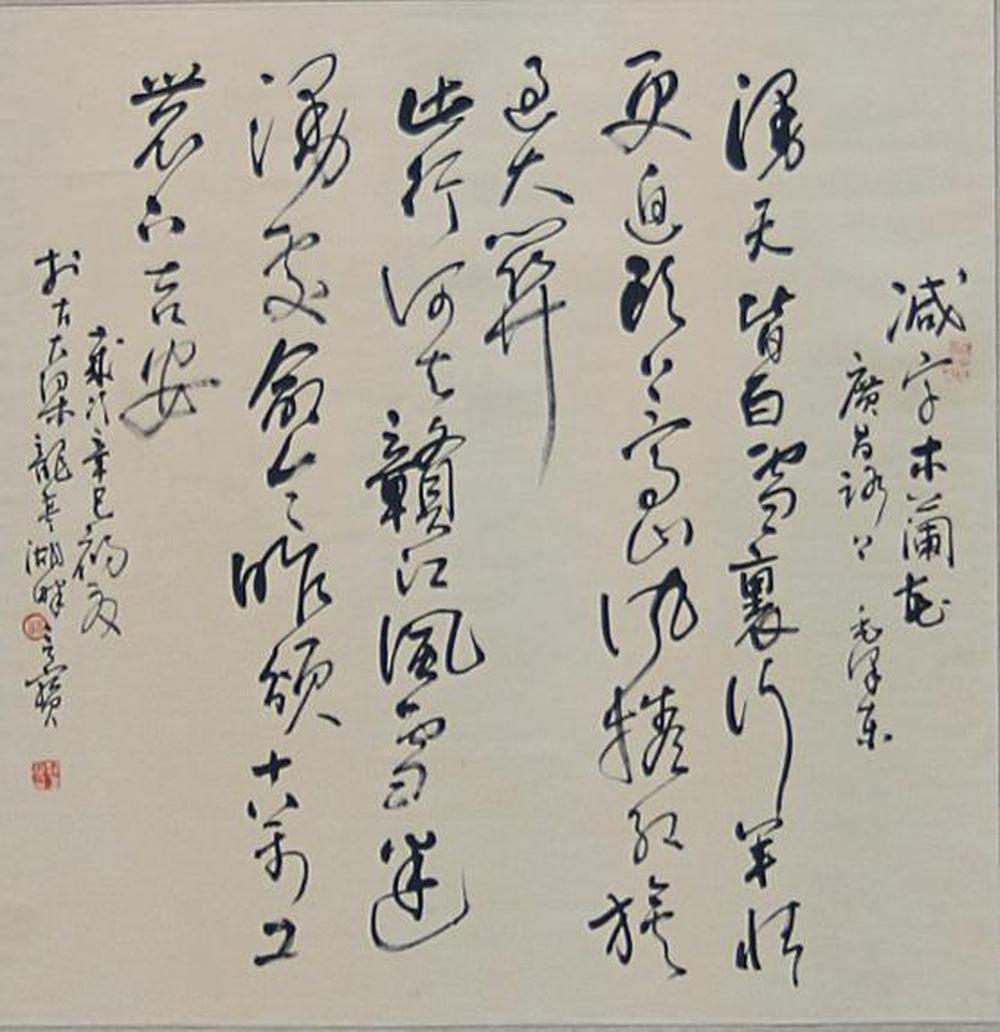 減字木蘭花
廣昌路上 毛澤東
漫天皆白雪裏行軍情
更迫頭上高山風捲紅旗
過大關
此行何去贛江風雪迷
漫處命令昨頒十萬工
農下吉安
歲次辛巳初夏
於古大梁龍亭湖畔